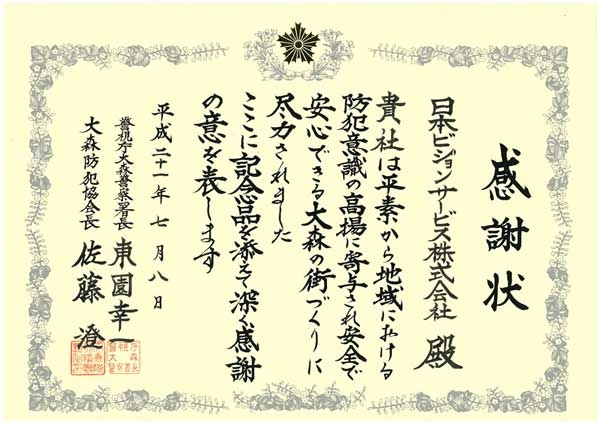 感謝状
日本ビジョンサービス株式会社 殿
貴社は平素から地域における
防犯意識の高揚に寄与され安全で
安心できる大森の街づくりに
尽力されました
ここに記念品を添えて深く感謝
の意を表します
平成二十一年七月八日
警視庁大森警察署長 東園幸一
大森防犯協会長 佐藤澄